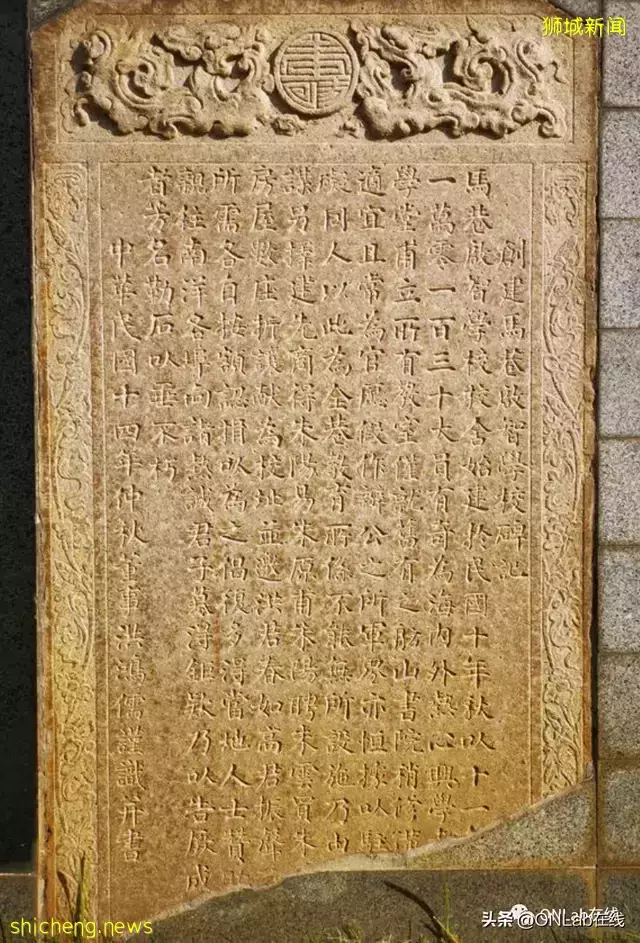 狮城新闻
創建馬巷啟智學校碑記
馬巷啟智學校校舍始建於民國十年秋以十一
一萬零一百三十大員有奇為海內外熱心興學
學堂甫立所有教室僅就舊有之舫山書院稍修
適宜且常為官廳假作辦公之所軍界亦恒據以駐
礙同人以此為全巷教育所係不能無所設施乃由
謀另擇建先商得朱陽易朱原甫朱陽聘朱雲質朱
房屋數座折讓献為校址並邀洪君春如高君振聲
所需各自按額認捐以為之倡復多得當地人士贊
親往南洋各埠向諸熱誠君子募得鉅欵乃以告厥成
首芳名勒石以垂不朽
中華民國十四年仲秋董事洪鴻儒謹識并書
shicheng.news
头条@ONLab在线